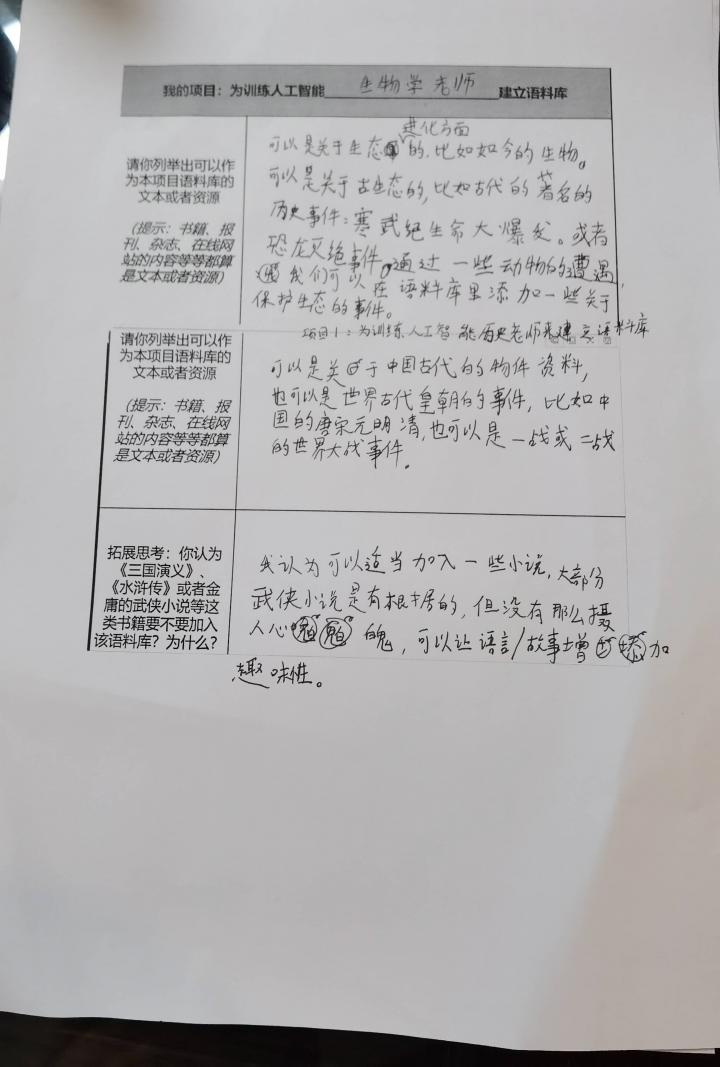 我的项目：为训练人工智能 生物学老师 建立语料库
请你列举出可以作
为本项目语料库的
文本或者资源
(提示：书籍、报
刊、杂志、在线网
站的内容等等都算
是文本或者资源)
进化方面
可以是关于生态的，比如如今的生物。
可以是关于古生态的，比如古代的著名的
历史事件：寒武纪生命大爆发。或者
恐龙灭绝事件，通过一些动物的遭遇，
我们可以在语料库里添加一些关于
保护生态的事件。
项目1：为训练人工智能历史老师来建立语料库
请你列举出可以作
为本项目语料库的
文本或者资源
(提示：书籍、报
刊、杂志、在线网
站的内容等等都算
是文本或者资源)
可以是关于中国古代的物件资料，
也可以是世界古代皇朝的事件，比如中
国的唐宋元明清，也可以是一战或二战
的世界大战事件。
拓展思考：你认为
《三国演义》、
《水浒传》或者金
庸的武侠小说等这
类书籍要不要加入
该语料库？为什么？
我认为可以适当加入一些小说，大部份
武侠小说是有根据的，但没有那么摄
人心魄，可以让语言/故事增添加
趣味性。